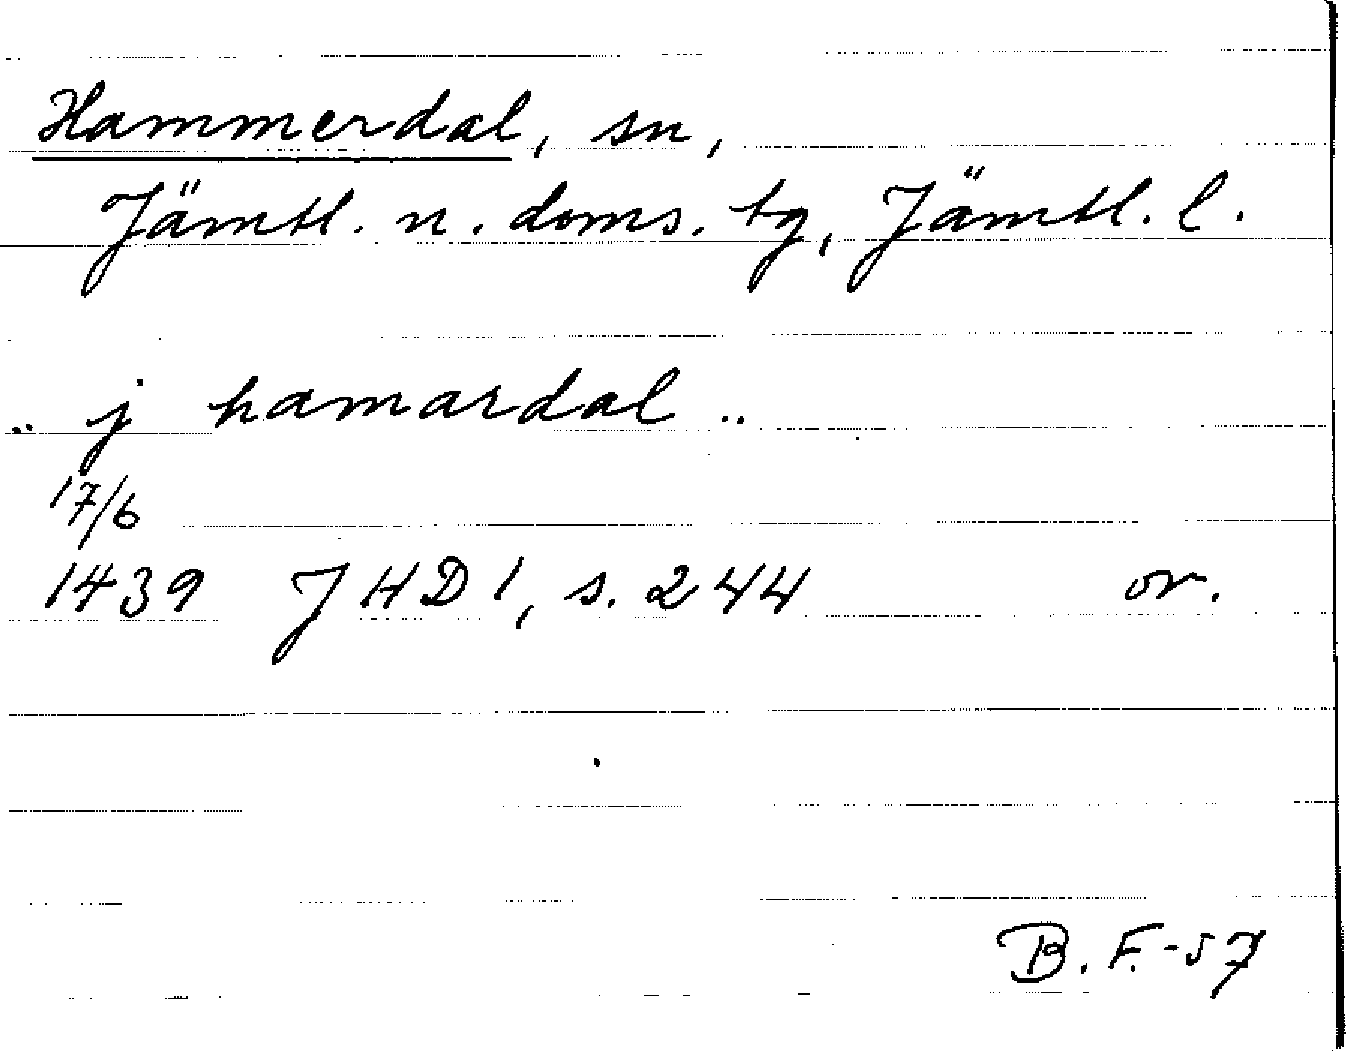 Hammerdal, sn,
Jämtl. n. doms. tg, Jämtl. l.
.. j hamardal ..
17/6
1439 JHD 1, s. 244 or.
B. F. -57